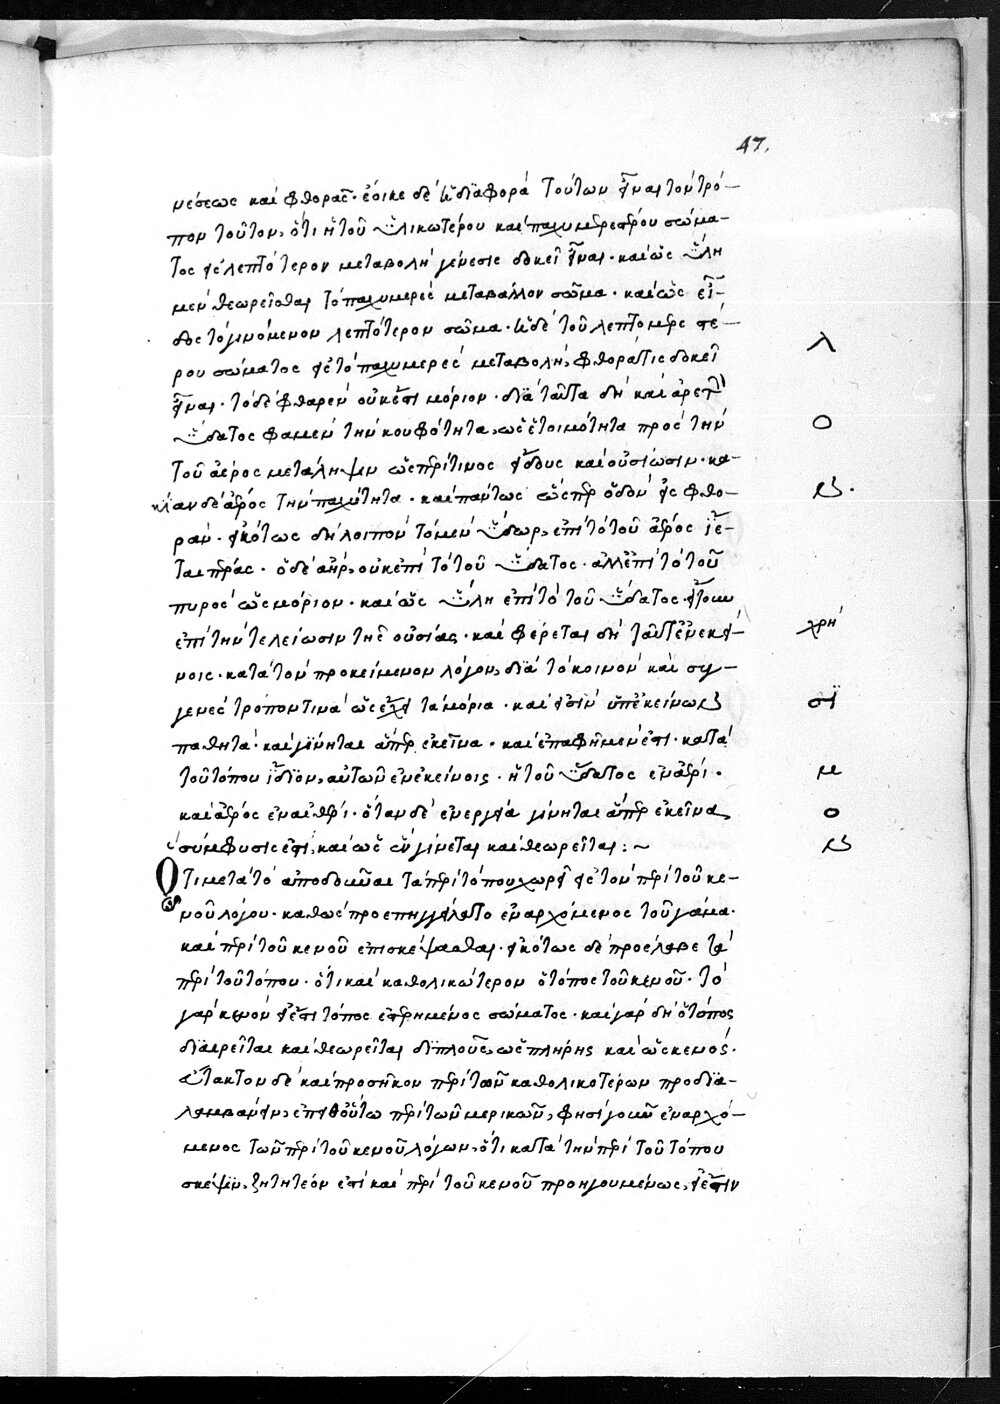 47.
νέσεως καὶ φθορᾶς· ἔοικε δὲ ἡ διαφορὰ τούτων εἶναι τὸν τρό-
πον τοῦτον, ὅτι ἡ τοῦ ὑλικωτέρου καὶ παχυμερεστέρου σώμα-
τος εἰς λεπτότερον μεταβολὴ γένεσις δοκεῖ εἶναι· καὶ ὡς ὕλη
μὲν θεωρεῖσθαι τὸ παχυμερὲς μεταβάλλον σῶμα· καὶ ὡς εἶ-
δος τὸ γινόμενον λεπτότερον σῶμα· ἡ δὲ τοῦ λεπτομερεστέ-
ρου σώματος εἰς τὸ παχυμερὲς μεταβολὴ, φθορά τις δοκεῖ
λ
εἶναι· τὸ δὲ φθαρὲν οὐκ ἔστι μόριον· διὰ ταῦτα δὴ καὶ ἀρετὴν
ὕδατος φαμὲν τὴν κουφότητα, ὡς ἑτοιμότητα πρὸς τὴν
ο
τοῦ ἀέρος μετάληψιν ὥσπερ τινος εἴδους καὶ οὐσίωσιν· κα-
κίαν δὲ ἀέρος τὴν παχύτητα· καὶ πάντως ὥσπερ ὁδὸν εἰς φθο-
ράν· εἰκότως δὴ λοιπὸν τὸ μὲν ὕδωρ, ἐπὶ τὸ τοῦ ἀέρος ἵε-
ται πέρας· ὁ δὲ ἀὴρ, οὐκ ἐπὶ τὸ τοῦ ὕδατος· ἀλλ' ἐπὶ τὸ τοῦ
πυρὸς ὡς μόριον· καὶ ὡς ὕλη ἐπὶ τὸ τοῦ ὕδατος εἶδος
ἐπὶ τὴν τελείωσιν τῆς οὐσίας· καὶ φέρεται δὴ ταῦτ' ἐν ἐκεί-
χρή
νοις· κατὰ τὸν προκείμενον λόγον, διὰ τὸ κοινὸν καὶ συγ-
γενὲς τρόπον τινὰ ὡς ἔχει τὰ μόρια· καὶ εἰσὶν ὑπ' ἐκείνων
σϊ
παθητά· καὶ γίνηται ἅπερ ἐκεῖνα· καὶ ἐπαφὴ μέν ἐστι· κατὰ
τοῦ τόπου ἴδϊον, αὐτῶν ἐν ἐκείνοις· ἡ τοῦ ὕδατος ἐν ἀέρι·
με
καὶ ἀέρος ἐν αἰθέρι· ὅταν δὲ ἐνεργείᾳ γίνηται ἅπερ ἐκεῖνα,
ο
σύμφυσις ἐστὶ, καὶ ὡς ἓν γίνεται καὶ θεωρεῖται: ~
Ὅτι μετὰ τὸ ἀποδοῦναι τὰ περὶ τόπου χωρεῖ εἰς τὸν περὶ τοῦ κε-
νοῦ λόγου· καθὼς προεπηγγείλατο ἐναρχόμενος τοῦ γάμα·
καὶ περὶ τοῦ κενοῦ ἐπισκέψασθαι· εἰκότως δὲ προέλαβε τὰ
περὶ τοῦ τόπου· ὅτι καὶ καθολικώτερον ὁ τόπος τοῦ κενοῦ· τὸ
γὰρ κενόν ἐστι τόπος ἐστερημένος σώματος· καὶ γὰρ δὴ ὁ τόπος
διαιρεῖται καὶ θεωρεῖται διπλοῦς, ὡς πλήρης καὶ ὡς κενός·
εὔτακτον δὲ καὶ προσῆκον περὶ τῶν καθολικοτέρων προδια-
λαμβάνειν, ἐπειθ' οὕτω περὶ τῶν μερικῶν, φησὶ γοῦν ἐναρχό-
μενος τῶν περὶ τοῦ κενοῦ λόγων, ὅτι κατὰ τὴν περὶ τοῦ τόπου
σκέψιν, ζητητέον ἐστὶ καὶ περὶ τοῦ κενοῦ προηγουμένως, εἰ ἔστιν